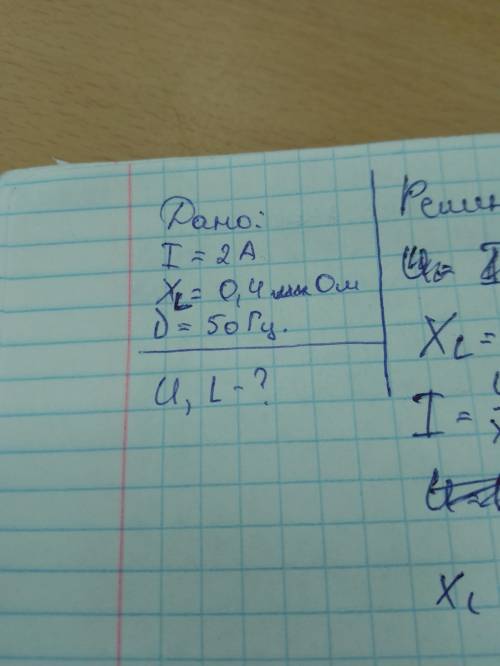 Дано:
I = 2А
XL = 0,4 Ом
ν = 50 Гц.
U, L - ?
Решен
U = I
XL =
I = U
XL